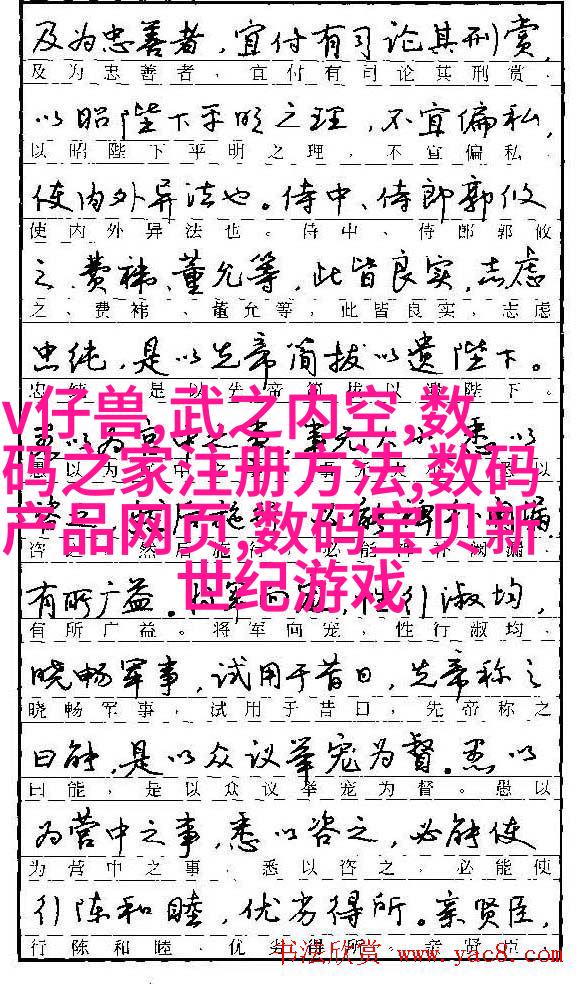 及为忠善者，宜付有司论其刑赏，
及为忠善者，宜付有司论其刑赏．
以昭陛下平明之理，不宜偏私，
以昭陛下平明之理，不宜偏私．
使内外异法也。侍中、侍郎郭攸
使内外异法也。侍中、侍郎郭攸
之、费祎、董允等，此皆良实，志虑
之、费祎、董允等，此皆良实，志虑
忠纯，是以先帝简拔以遗陛下。
忠纯，是以先帝简拔以遗陛下。
v仔兽,武之内空,数
码之家注册方法,数码
产品网页,数码宝贝新
世纪游戏
有所广益。将军向宠，性行淑均，
有所广益。将军向宠，性行淑均．
晓畅军事，试用于昔日，先帝称之
晓畅军事，试用于昔日，先帝称之
曰能，是以众议举宠为督。愚以
曰能，是以众议举宠为督。愚以
为营中之事，悉以咨之，必能使
为营中之事．悉以咨之，必能使
行陈和睦，优劣得所。亲贤臣，
行陈和睦．优劣得所。亲贤臣．
书法欣赏 www.yac8.com